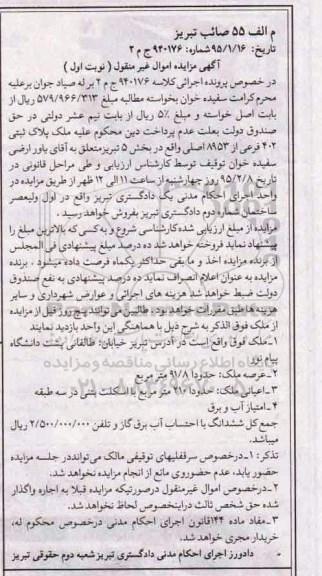 م الف ۵۵ صائب تبریز
تاریخ: ۹۵/۱/۱۶ شماره: ۹۴۰۱۷۶ ج م ۲
آگهی مزایده اموال غیر منقول ( نوبت اول )
در خصوص پرونده اجرائی کلاسه ۹۴۰۱۷۶ ج م ۲ بر له صیاد جوان برعلیه
محرم کرامت سفیده خوان بخواسته مطالبه مبلغ ۵۷۹/۹۶۶/۳۱۳ ریال از
بابت اصل خواسته و مبلغ ۵٪ ریال از بابت نیم عشر دولتی در حق
صندوق دولت بعلت عدم پرداخت دین محکوم علیه ملک پلاک ثبتی
۴۰۲ فرعی از ۸۹۵۳ اصلی واقع در بخش ۵ تبریز متعلق به آقای یاور ارضی
سفیده خوان توقیف توسط کارشناس ارزیابی و طی مراحل قانونی در
تاریخ ۹۵/۲/۸ روز چهارشنبه از ساعت ۱۱ الی ۱۲ ظهر از طریق مزایده در
واحد اجرای احکام مدنی یک دادگستری تبریز واقع در اول ولیعصر
ساختمان شماره دوم دادگستری تبریز بفروش خواهد رسید .
مزایده از مبلغ ارزیابی شده کارشناسی شروع و به کسی که بالاترین مبلغ را
پیشنهاد نماید فروخته خواهد شد ده درصد مبلغ پیشنهادی فی المجلس
از برنده مزایده اخذ و ما بقی حداکثر یکماه فرصت داده میشود . برنده
مزایده به عنوان اعلام انصراف نماید ده درصد پیشنهادی به نفع صندوق
دولت ضبط خواهد شد هزینه های اجرائی و عوارض شهرداری و سایر
هزینه ها طبق مقررات خواهد بود . طالبین می توانند پنج روز قبل از مزایده
از ملک فوق الذکر به شرح ذیل با هماهنگی این واحد بازدید نمایند
۱ـ ملک فوق واقع است در آدرس تبریز خیابان: طالقانی پشت دانشگاه
پیام نور
۲ـ عرصه ملک: حدودا ۹۱/۸ متر مربع
۳ـ اعیانی ملک: حدودا ۲۱۶ متر مربع با اسکلت بتنی در سه طبقه
۴ـ امتیاز آب و برق
جمع کل ششدانگ با احتساب آب برق گاز و تلفن ۲/۵۰۰/۰۰۰/۰۰۰ ریال
میباشد.
تذکر: ۱ـ درخصوص سرقفلیهای توقیفی مالک می تواند در جلسه مزایده
حضور یابد، عدم حضور وی مانع از انجام مزایده نخواهد شد.
۲ـ درخصوص اموال غیر منقول درصورتیکه مزایده قبلا به اجاره واگذار
شده حق شخص ثالث دراینخصوص لحاظ نخواهد شد.
۳ـ مفاد ماده ۱۴۴ قانون اجرای احکام مدنی درخصوص محکوم له،
خریدار مجری خواهد شد.
دادورز اجرای احکام مدنی دادگستری تبریز شعبه دوم حقوقی تبریز